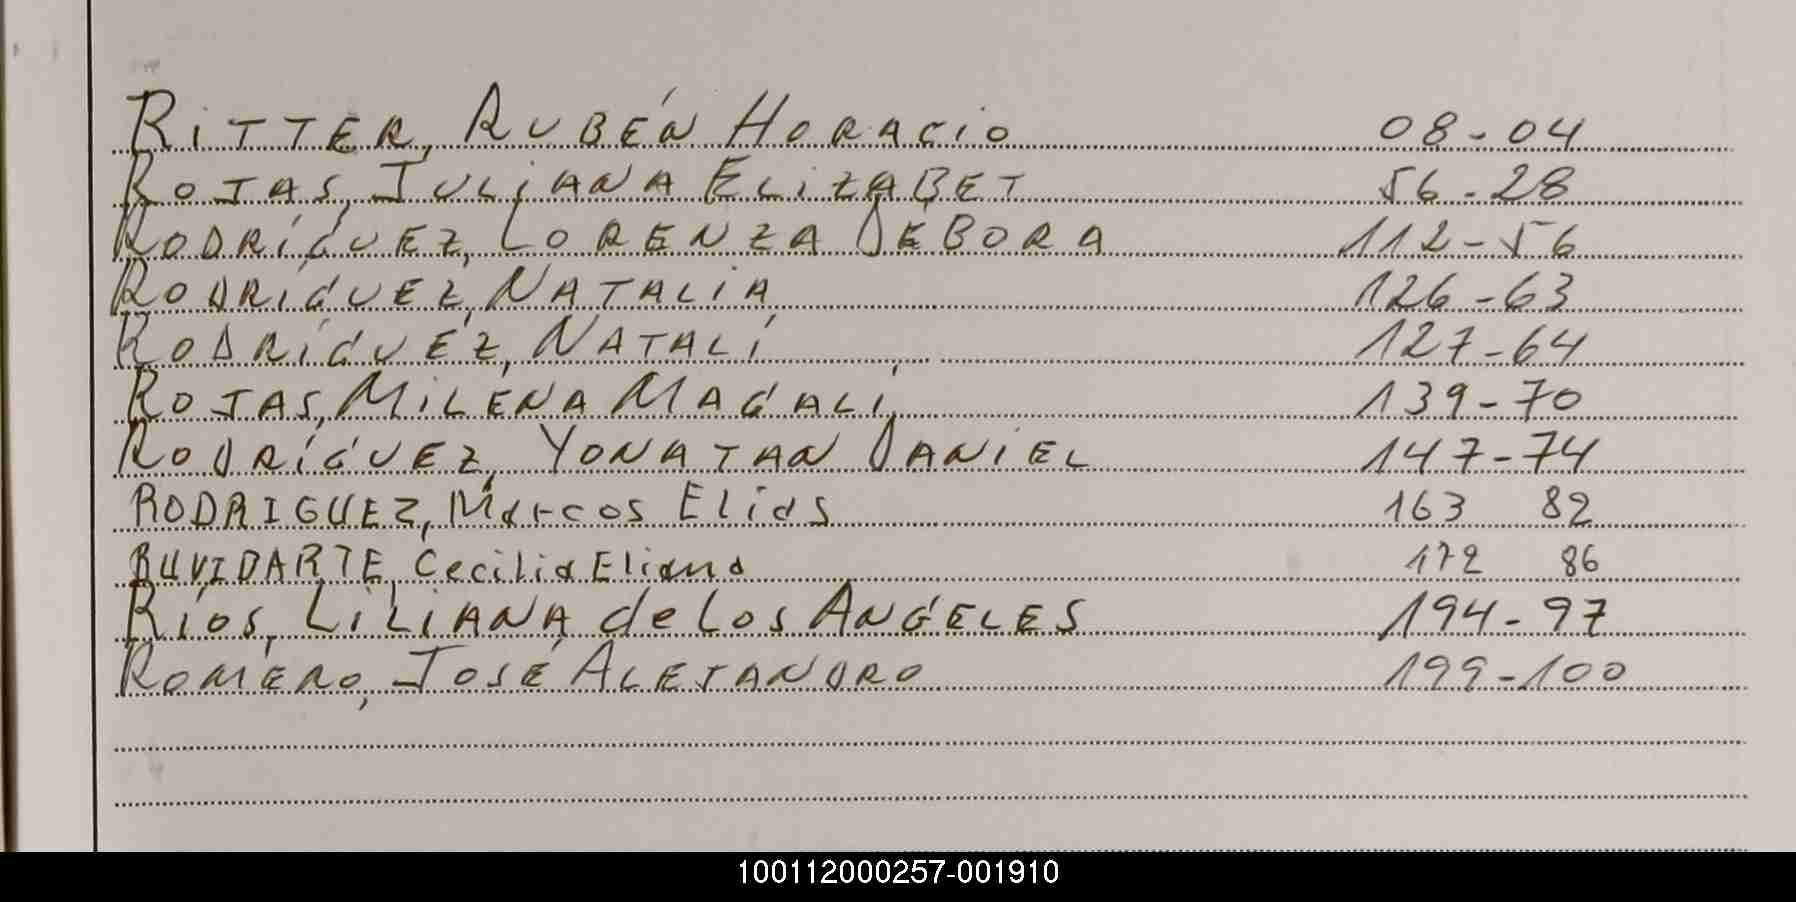 RITTER, RUBÉN HORACIO 08-04
ROJAS, JULIANA ELIZABET 56-28
RODRÍGUEZ, LORENZA DÉBORA 112-56
RODRÍGUEZ, NATALIA 126-63
RODRÍGUEZ, NATALÍ 127-64
ROJAS, MILENA MAGALÍ 139-70
RODRÍGUEZ, YONATAN DANIEL 147-74
RODRIGUEZ, Marcos Elias 163 82
RUVIDARTE, Cecilia Eliana 172 86
RÍOS, LILIANA de Los ANGELES 194-97
ROMERO, JOSÉ ALEJANDRO 199-100
100112000257-001910